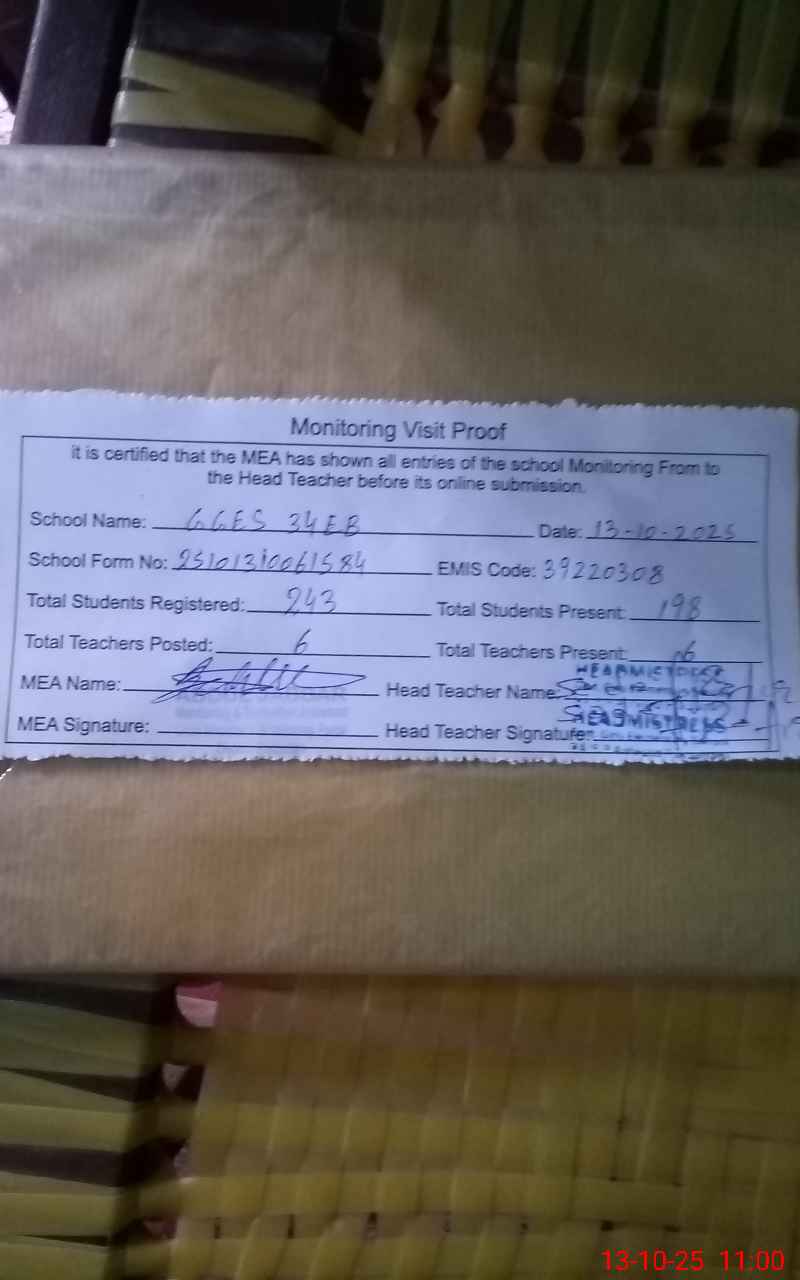 Monitoring Visit Proof
it is certified that the MEA has shown all entries of the school Monitoring From to
the Head Teacher before its online submission.
School Name: GGES 34EB Date: 13-10-2025
School Form No: 25101310061584 EMIS Code: 39220308
Total Students Registered: 243 Total Students Present: 198
Total Teachers Posted: 6 Total Teachers Present: 06
MEA Name: Head Teacher Name:
HEADMISTRESS
MEA Signature: Head Teacher Signature:
HEADMISTRESS
13-10-25 11:00